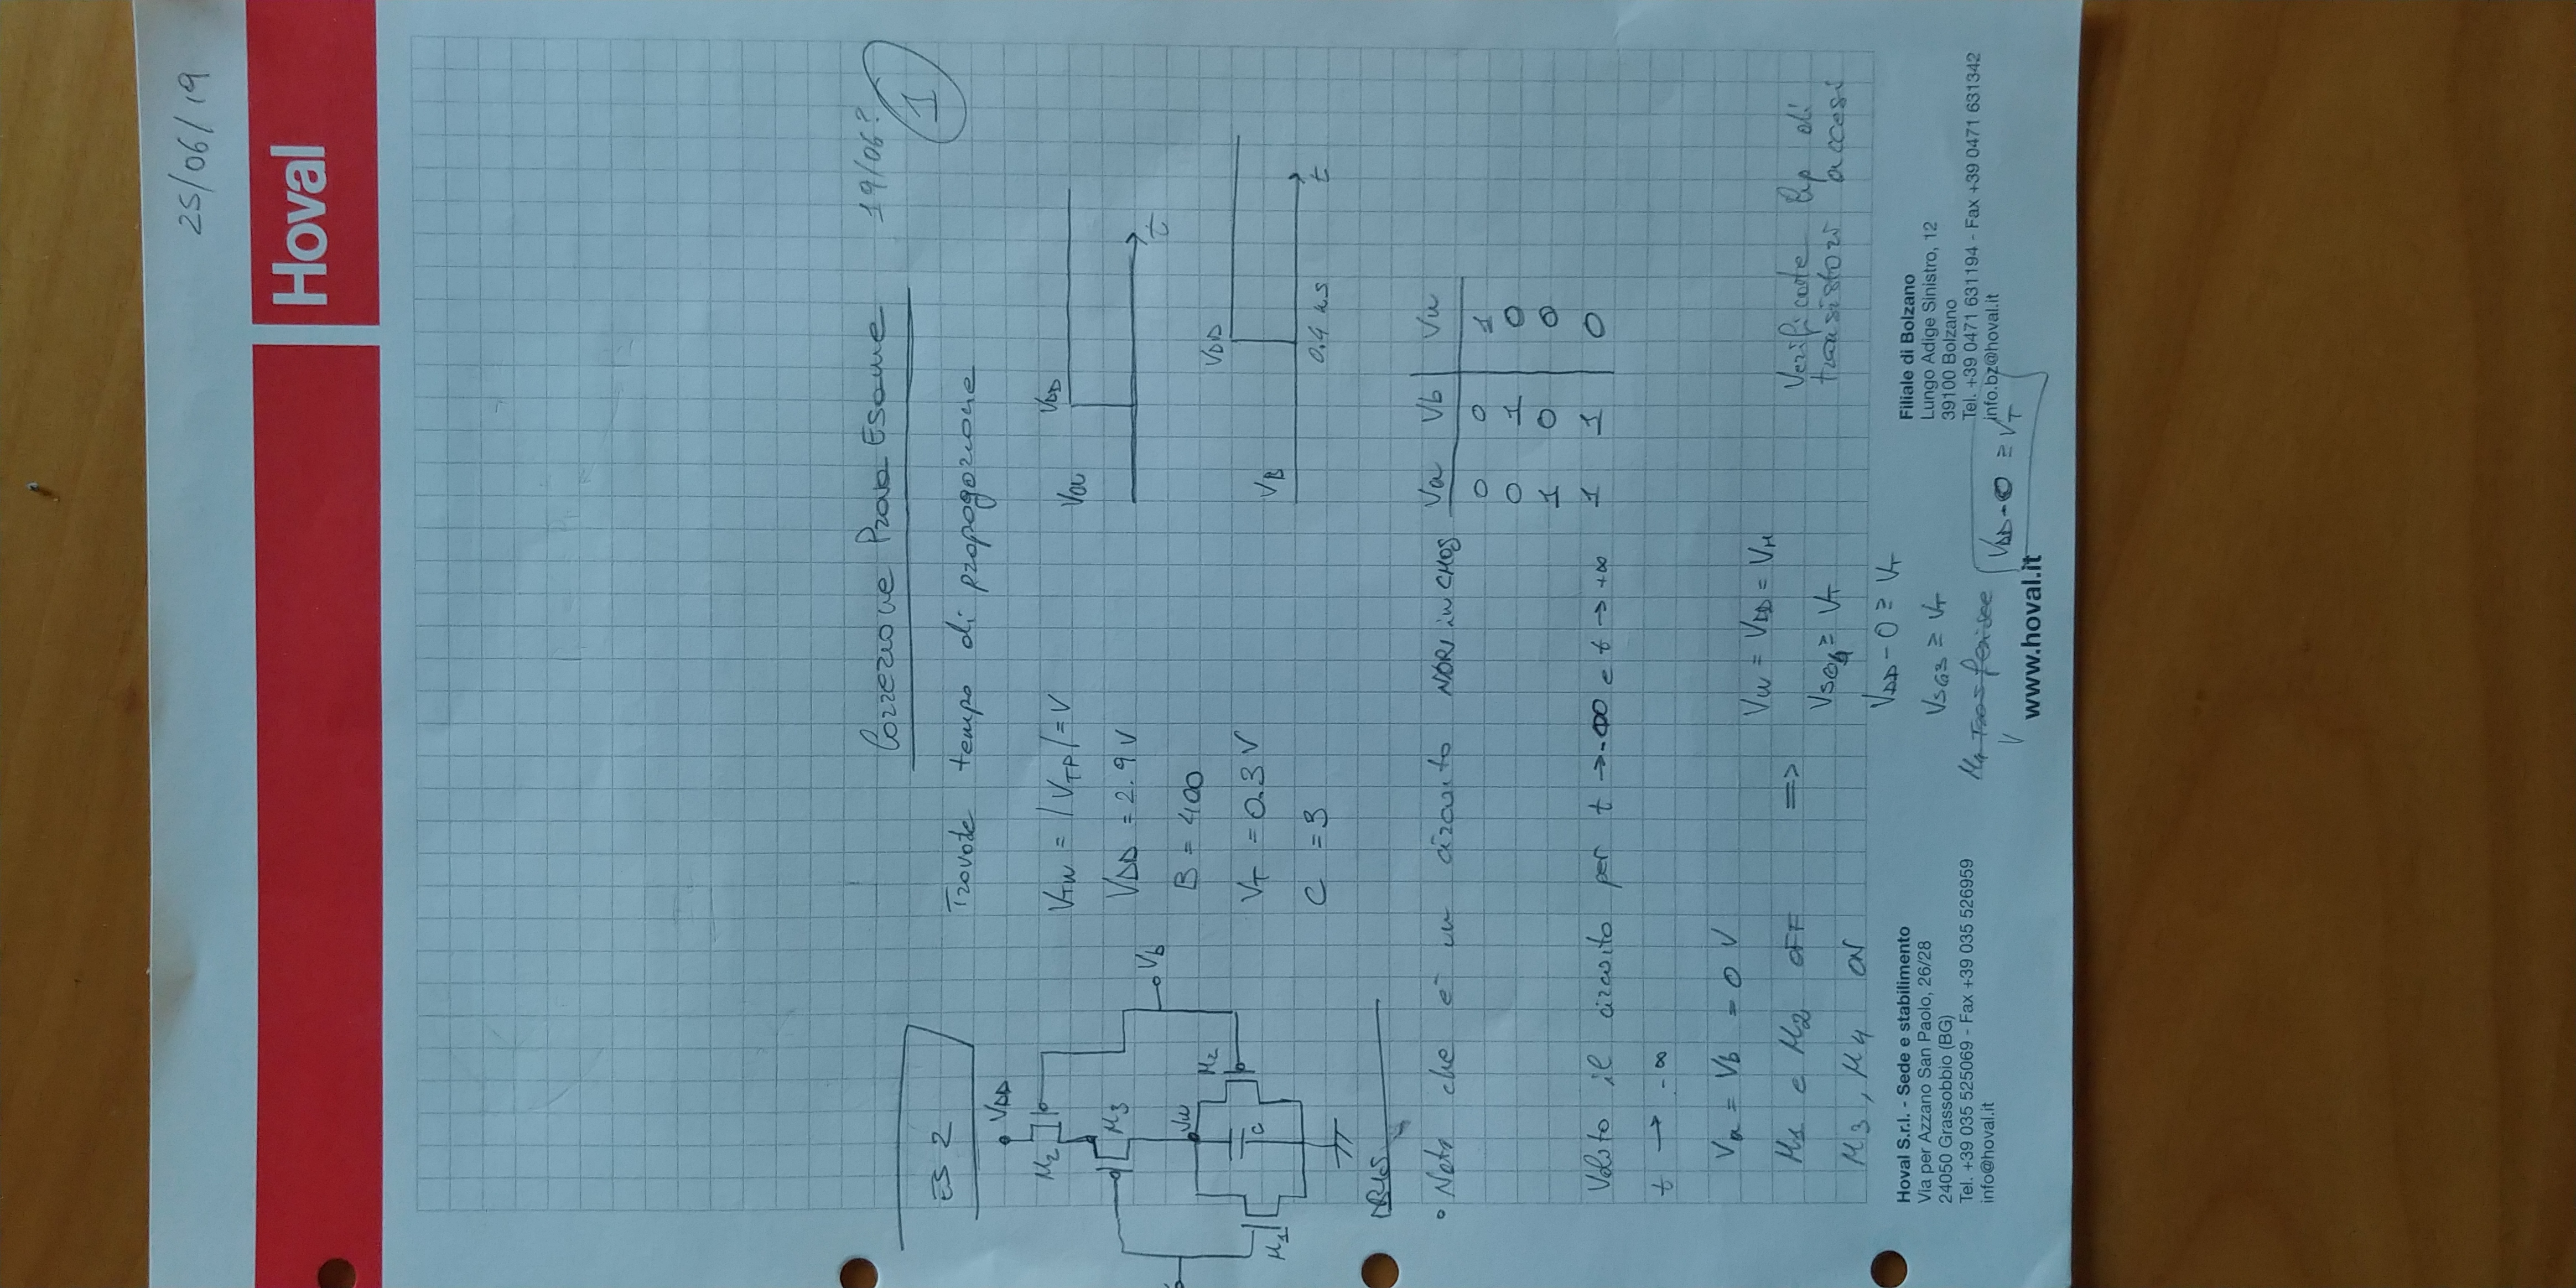 25/06/19
Hoval
Correzione Prova Esame 19/06?
1
ES 2
Trovate tempo di propagazione
VDD
M2
M3
Vb
Vu
M2
C
M1
VTN = |VTP| = V
VDD = 2.9 V
B = 400
VT = 0.3 V
C = 3
Va
VDD
t
VB
VDD
0.4 ns
t
Noto che e' un circuito NOR in CMOS
Va Vb Vu
0 0 1
0 1 0
1 0 0
1 1 0
Valuto il circuito per t → -∞ e t → +∞
t → -∞
Va = Vb = 0 V
M1 e M2 OFF =>
M3, M4 ON
Vu = VDD = VH
VSG4 ≥ VT
VDD - 0 ≥ VT
VSG3 ≥ VT
M4 Trasferisce
V
VDD - 0 ≥ VT
Verificate Hp di
transistori accesi
Hoval S.r.l. - Sede e stabilimento
Via per Azzano San Paolo, 26/28
24050 Grassobbio (BG)
Tel. +39 035 525069 - Fax +39 035 526959
info@hoval.it
Filiale di Bolzano
Lungo Adige Sinistro, 12
39100 Bolzano
Tel. +39 0471 631194 - Fax +39 0471 631342
info.bz@hoval.it
www.hoval.it